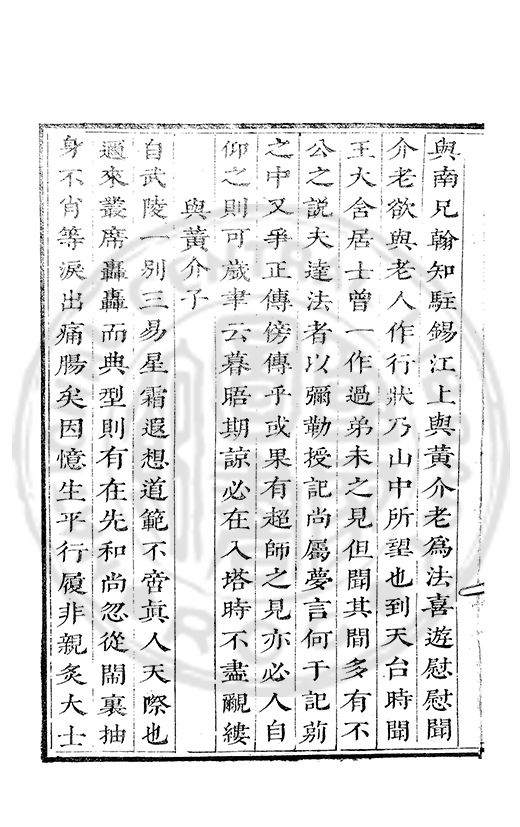 與南兄翰知駐錫江上與黃介老爲法喜遊慰慰聞
介老欲與老人作行狀乃山中所望也到天台時聞
王大含居士曾一作過弟未之見但聞其間多有不
公之說夫達法者以彌勒授記尚屬夢言何于記莂
之中又爭正傳傍傳乎或果有超師之見亦必人自
仰之則可歲聿云暮晤期諒必在入塔時不盡覼縷
與黃介子
自武陵一別三易星霜遐想道範不啻眞人天際也
邇來叢席轟轟而典型則有在先和尚忽從鬧裏抽
身不肖等淚出痛腸矣因憶生平行履非親炙大士